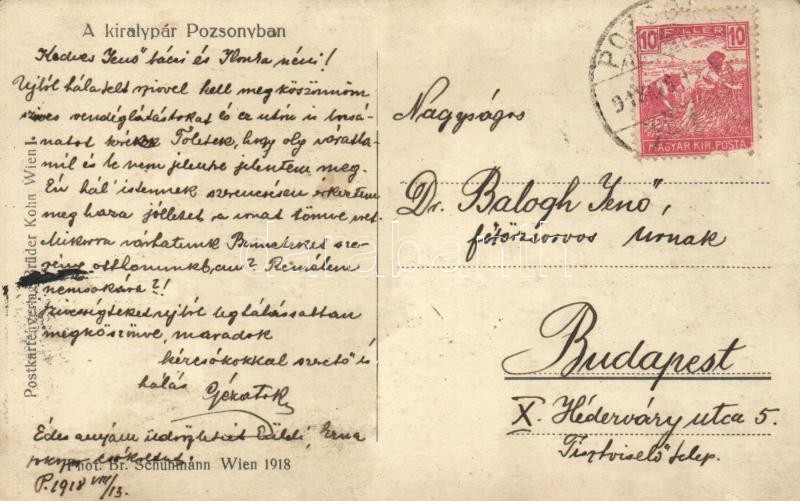 A kiralypár Pozsonyban
Kedves Jenő bácsi és Ilonka néni!
Ujból hálatelt szivvel kell megköszönnöm
szives vendéglátástokat és ez uton is bocsá-
natot kérek Tőletek, hogy oly váratla-
nul és be nem jelentve jelentem meg.
Én hál' istennek szerencsésen érkeztem
meg haza jóllehet a vonat tömve volt.
Mikorra várhatunk Benneteket sze-
rény otthonunkban? Remélem
nemsokára?!
Szivességteket ujból leghálásabban
megköszönve, maradok
kézcsókokkal szerető és
hálás
Édes anyám üdvözletét küldi, Erna
P. 1918 VIII/13.
Phot. Br. Schuhmann Wien 1918
Postkartenverlag Brüder Kohn Wien I.
POZSONY
10 FILLÉR 10
MAGYAR KIR. POSTA
Nagyságos
Dr. Balogh Jenő,
főtörzsorvos Urnak
Budapest
X. Héderváry utca 5.
Tisztviselő telep.
darabanth.com